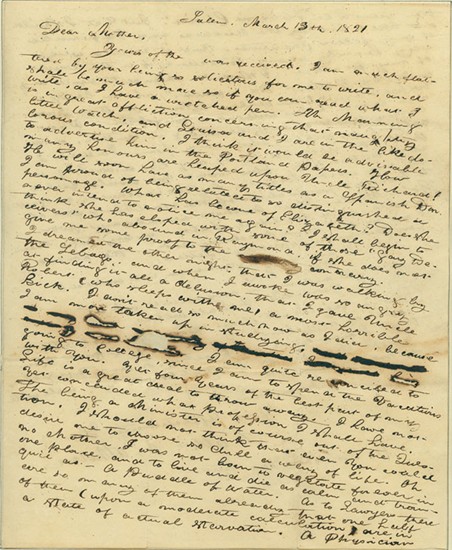 Salem. March 13th, 1821
Dear Mother,
Yours of the was received. I am much flat-
tered by your being so solicitous for me to write, and
shall be much more so if you can read what I
write, as I have a wretched pen. Mr Manning
is in great affliction concerning that naughty
little Watch, and Louisa and I are in the like do-
lorous condition. I think it would be adviseable
to advertise him in the Portland Papers. How
many honours are heaped upon Uncle Richard!
He will soon have as many titles as a Spanish Don.
I am proud of being related to so distinguished a
personage. What has become of Elizabeth? Does she
never intend to notice me again? I shall begin to
think she has eloped with some of those "gay De-
ceivers" who abound in Raymond, if she does not
give me some proof to the contrary.
I dreamed the other night, that I was walking by
the Sebago, and when I awoke was so angry
at finding it all a delusion, that I gave Uncle
Robert (who sleeps with me) a most horrible
kick. I don't read so much now as I did, because
I am more taken up in studying.
I am quite reconciled to
going to College, since I am to spend the Vacations
with you. Yet four years of the best part of my
Life is a great deal to throw away. I have not
yet concluded what Profession I shall have.
The being a Minister is of course out of the Ques-
tion. I should not think that even you could
desire me to choose so dull a way of life. Oh
no Mother, I was not born to vegetate forever in
one Place, and to live and die as calm and tran-
quil as - A Puddle of Water. As to Lawyers there
are so many of them already that one half
of them (upon a moderate calculation) are in
a state of actual starvation. A Physician